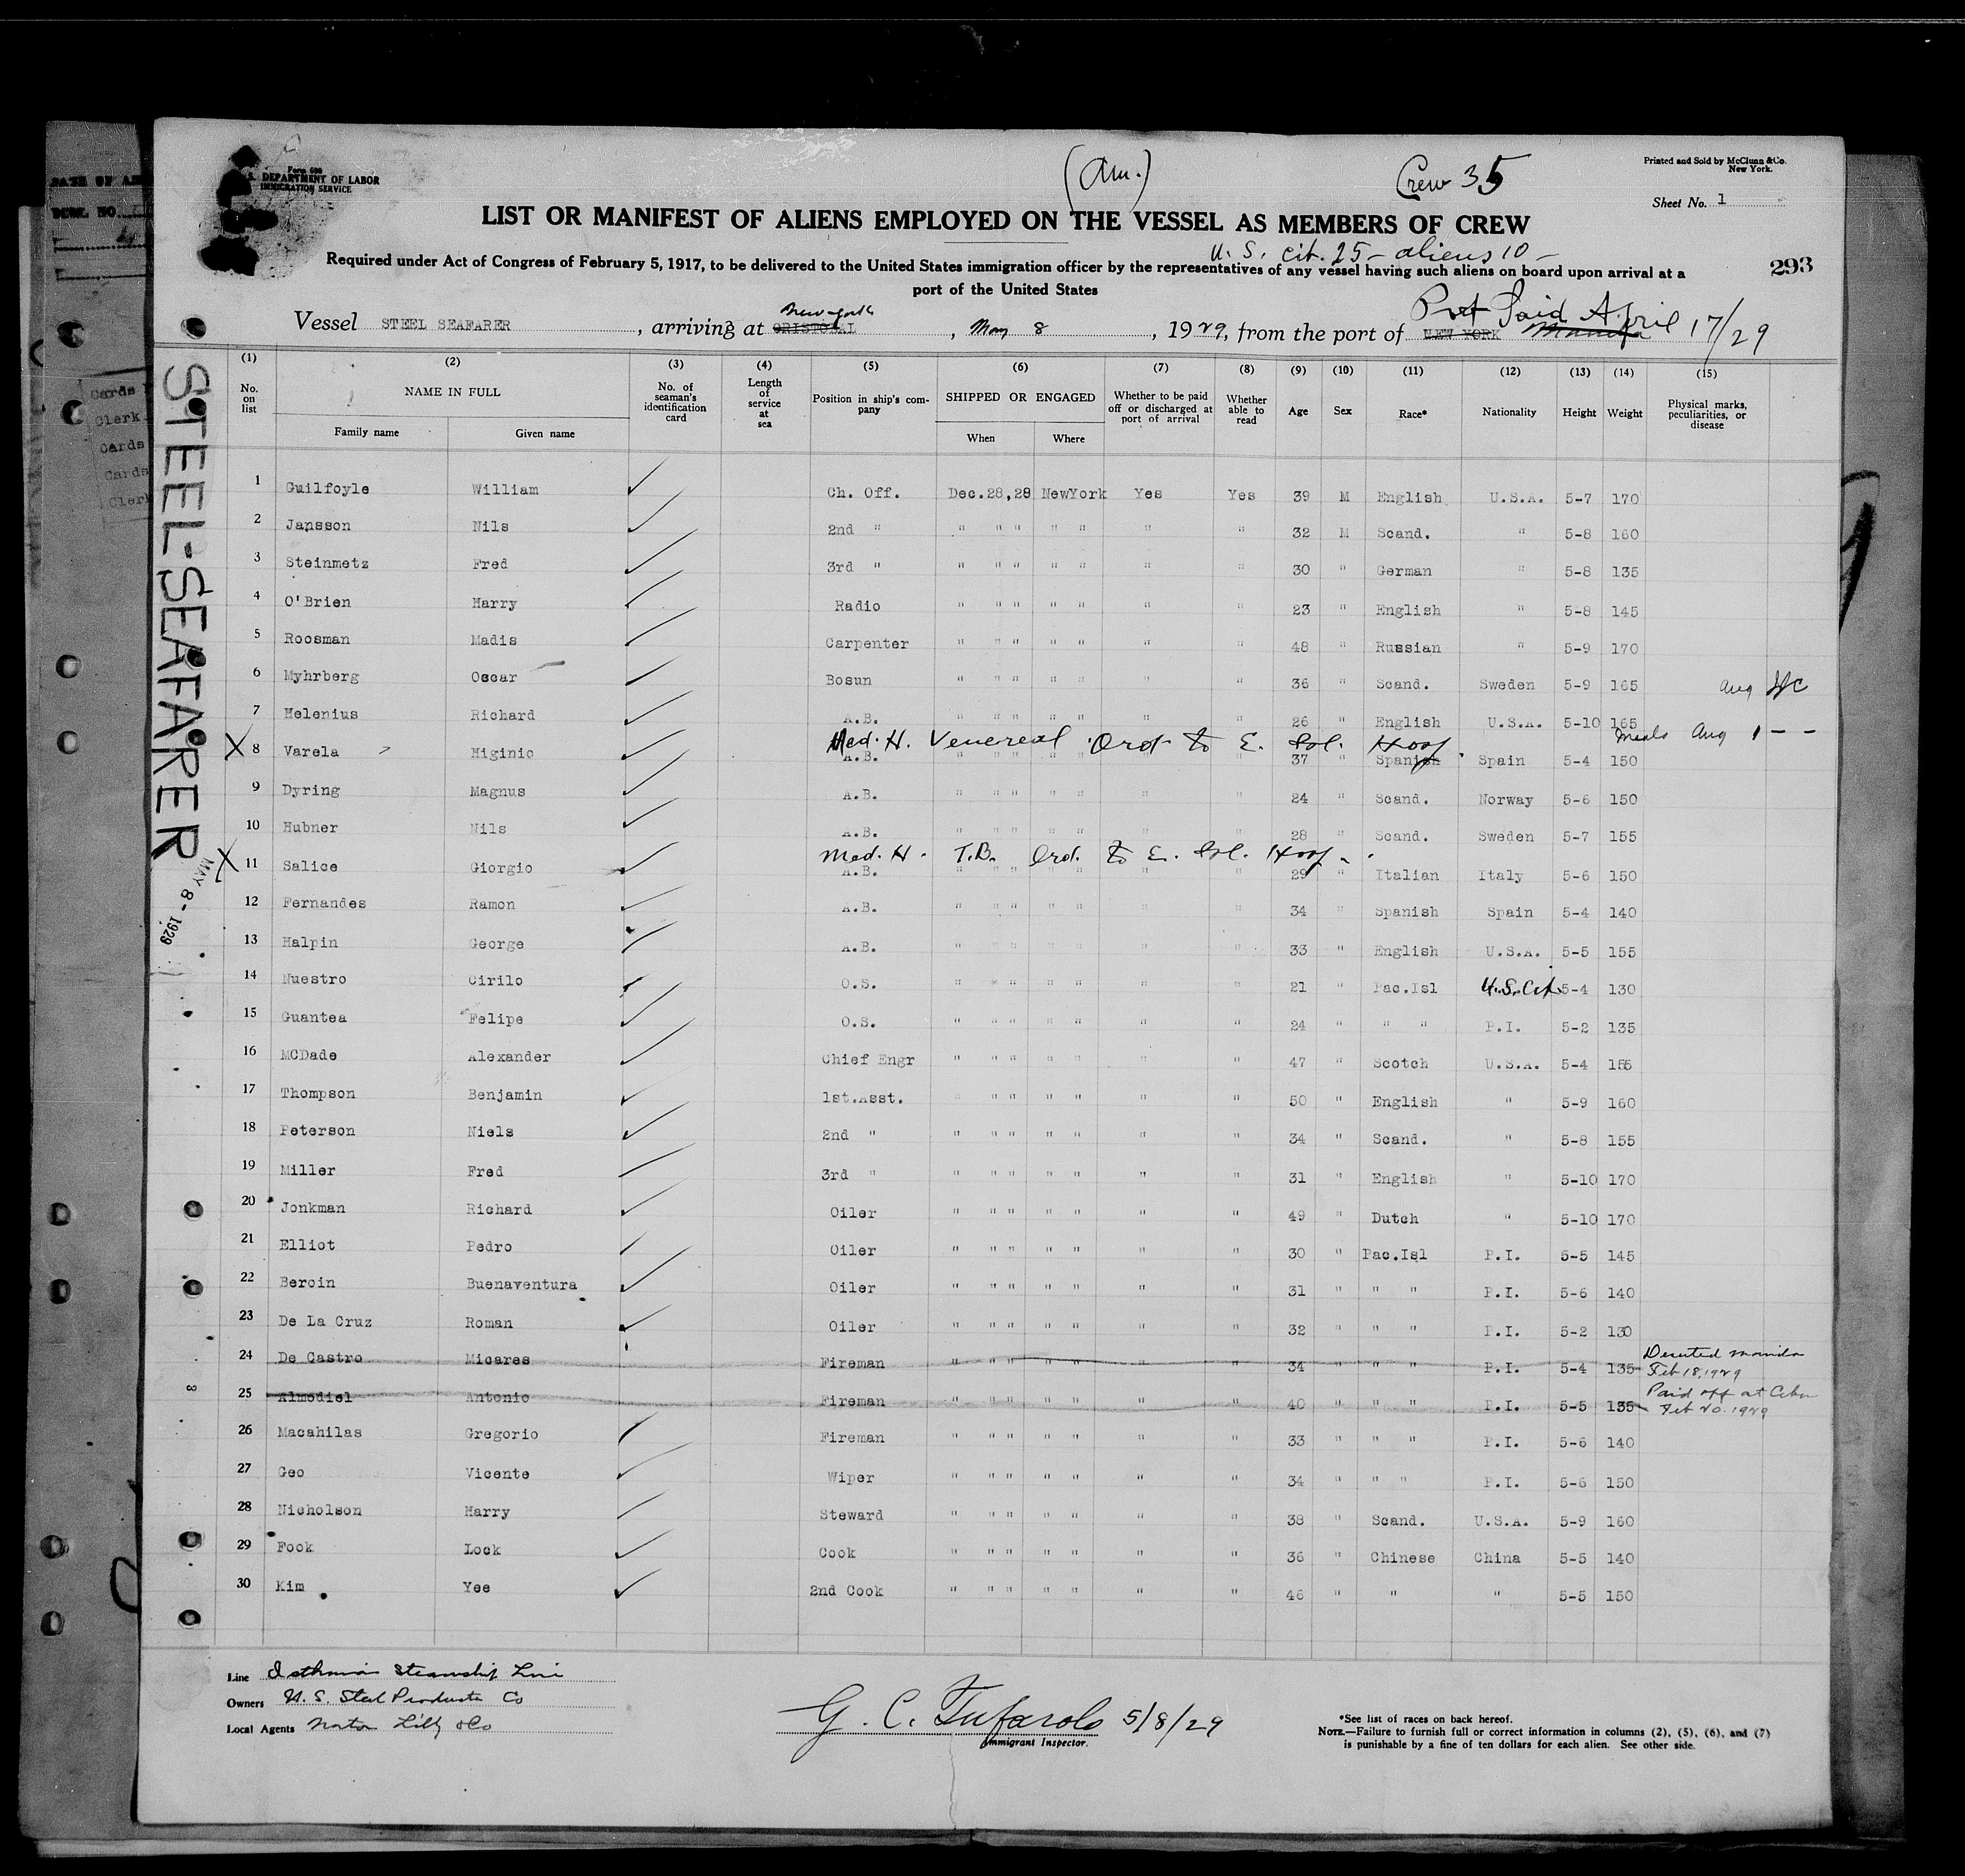 Form 680
S. DEPARTMENT OF LABOR
IMMIGRATION SERVICE
(Am.)
Crew 35
Printed and Sold by McClunn & Co.
New York.
Sheet No. 1
LIST OR MANIFEST OF ALIENS EMPLOYED ON THE VESSEL AS MEMBERS OF CREW
U. S. cit. 25 - aliens 10 -
Required under Act of Congress of February 5, 1917, to be delivered to the United States immigration officer by the representatives of any vessel having such aliens on board upon arrival at a
port of the United States
293
New York Port Said April 17/29
Vessel STEEL SEAFARER, arriving at CRISTOBAL, May 8, 1929, from the port of NEW YORK Manila
(1) (2) (3) (4) (5) (6) (7) (8) (9) (10) (11) (12) (13) (14) (15)
No. on list NAME IN FULL Family name Given name No. of seaman's identification card Length of service at sea Position in ship's company SHIPPED OR ENGAGED When Where Whether to be paid off or discharged at port of arrival Whether able to read Age Sex Race* Nationality Height Weight Physical marks, peculiarities, or disease
1 Guilfoyle William Ch. Off. Dec.28,28 NewYork Yes Yes 39 M English U.S.A. 5-7 170
2 Jansson Nils 2nd " " " " " " " " 32 M Scand. " 5-8 160
3 Steinmetz Fred 3rd " " " " " " " " 30 " German " 5-8 135
4 O'Brien Harry Radio " " " " " " " 23 " English " 5-8 145
5 Roosman Madis Carpenter " " " " " " " 48 " Russian " 5-9 170
6 Myhrberg Oscar Bosun " " " " " " " 36 " Scand. Sweden 5-9 165
7 Helenius Richard A.B. " " " " " " " 26 " English U.S.A. 5-10 165
Med. H. Venereal Ord to E. Isl. Hosp.
X 8 Varela Higinio A.B. " " " " " " " 37 " Spanish Spain 5-4 150
9 Dyring Magnus A.B. " " " " " " " 24 " Scand. Norway 5-6 150
10 Hubner Nils A.B. " " " " " " " 28 " Scand. Sweden 5-7 155
Med. H. T.B. Ord. to E. Isl. Hosp.
X 11 Salice Giorgio A.B. " " " " " " " 29 " Italian Italy 5-6 150
12 Fernandes Ramon A.B. " " " " " " " 34 " Spanish Spain 5-4 140
13 Halpin George A.B. " " " " " " " 33 " English U.S.A. 5-5 155
14 Nuestro Cirilo O.S. " " " " " " " 21 " Pac.Isl U.S. Cit 5-4 130
15 Guantea Felipe O.S. " " " " " " " 24 " " " P.I. 5-2 135
16 MCDade Alexander Chief Engr " " " " " " " 47 " Scotch U.S.A. 5-4 155
17 Thompson Benjamin 1st.Asst. " " " " " " " 50 " English " 5-9 160
18 Peterson Niels 2nd " " " " " " " " 34 " Scand. " 5-8 155
19 Miller Fred 3rd " " " " " " " " 31 " English " 5-10 170
20 Jonkman Richard Oiler " " " " " " " 49 " Dutch " 5-10 170
21 Elliot Pedro Oiler " " " " " " " 30 " Pac.Isl P.I. 5-5 145
22 Bercin Buenaventura Oiler " " " " " " " 31 " " " P.I. 5-6 140
23 De La Cruz Roman Oiler " " " " " " " 32 " " " P.I. 5-2 130
24 De Castro Micares Fireman " " " " " " " 34 " " " P.I. 5-4 135 Deserted Manila Feb 18, 1929
25 Almodiel Antonio Fireman " " " " " " " 40 " " " P.I. 5-5 135 Paid off at Cebu Feb 20. 1929
26 Macahilas Gregorio Fireman " " " " " " " 33 " " " P.I. 5-6 140
27 Geo Vicente Wiper " " " " " " " 34 " " " P.I. 5-6 150
28 Nicholson Harry Steward " " " " " " " 38 " Scand. U.S.A. 5-9 160
29 Fook Lock Cook " " " " " " " 36 " Chinese China 5-5 140
30 Kim Yee 2nd Cook " " " " " " " 46 " " " 5-5 150
Line Isthmian Steamship Line
Owners U. S. Steel Products Co
Local Agents Norton Lilly & Co
G. C. Tufarolo 5/8/29
Immigrant Inspector.
*See list of races on back hereof.
NOTE.—Failure to furnish full or correct information in columns (2), (5), (6), and (7)
is punishable by a fine of ten dollars for each alien. See other side.
STEEL-SEAFARER
MAY 8 - 1929
Cards
Clerk
Cards
Cards
Clerk